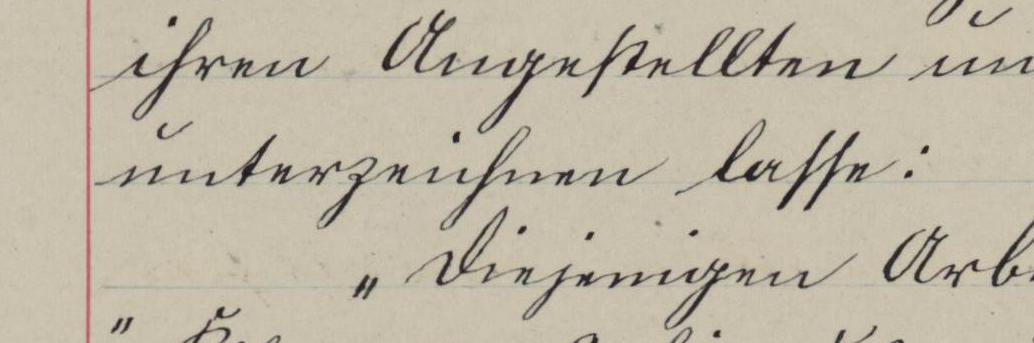 ihren Angestellten un
unterzeichnen lasse:
„Diejenigen Arb
"